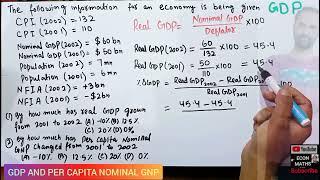 The following information for an economy is being given
GDP
CPI (2002) = 132
CPI (2001) = 110
Nominal GDP (2002) = $ 60 bn
Nominal GDP (2001) = $ 50 bn
Population (2002) = 7mn
Population (2001) = 6mn
NFIA (2002) = +3bn
NFIA (2001) = -2bn
① By how much has real GDP grown
from 2001 to 2002 (A) -10% (B) 12.5%
(C) 20% (D) 0%
② By how much per capita nominal
GNP changed from 2001 to 2002
(A) -10% (B) 12.5% (C) 20% (D) 0%
Real GDP = Nominal GDP / Deflator × 100
Real GDP (2002) = 60 / 132 × 100 = 45.4
Real GDP (2001) = 50 / 110 × 100 = 45.4
% Δ GDP = Real GDP2002 - Real GDP / Real GDP2001
45.4 - 45.4
GDP AND PER CAPITA NOMINAL GNP
YouTube
ECON
MATHS
SUBSCRIBE